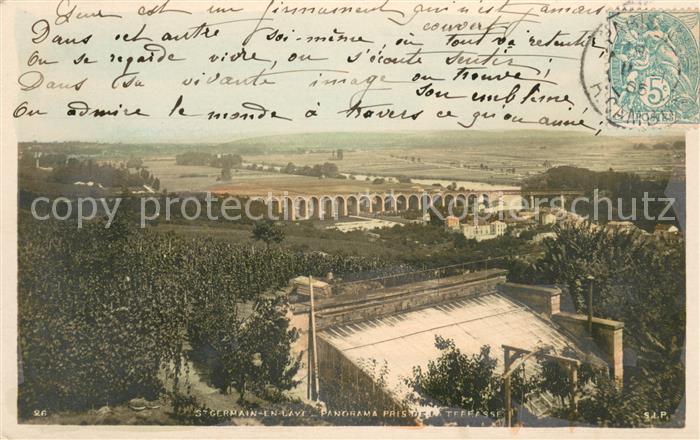 Que est un firmament qui n'est jamais
couvert
Dans cet autre soi-même, où tout va retentir
On se regarde vivre, ou s'écoute sentir ;
Dans sa vivante image on trouve
son emblème,
On admire le monde à travers ce qu'on aime,
5
copy protected
26
ST GERMAIN-EN-LAYE _ PANORAMA PRIS DE LA TERRASSE
S.I.P.